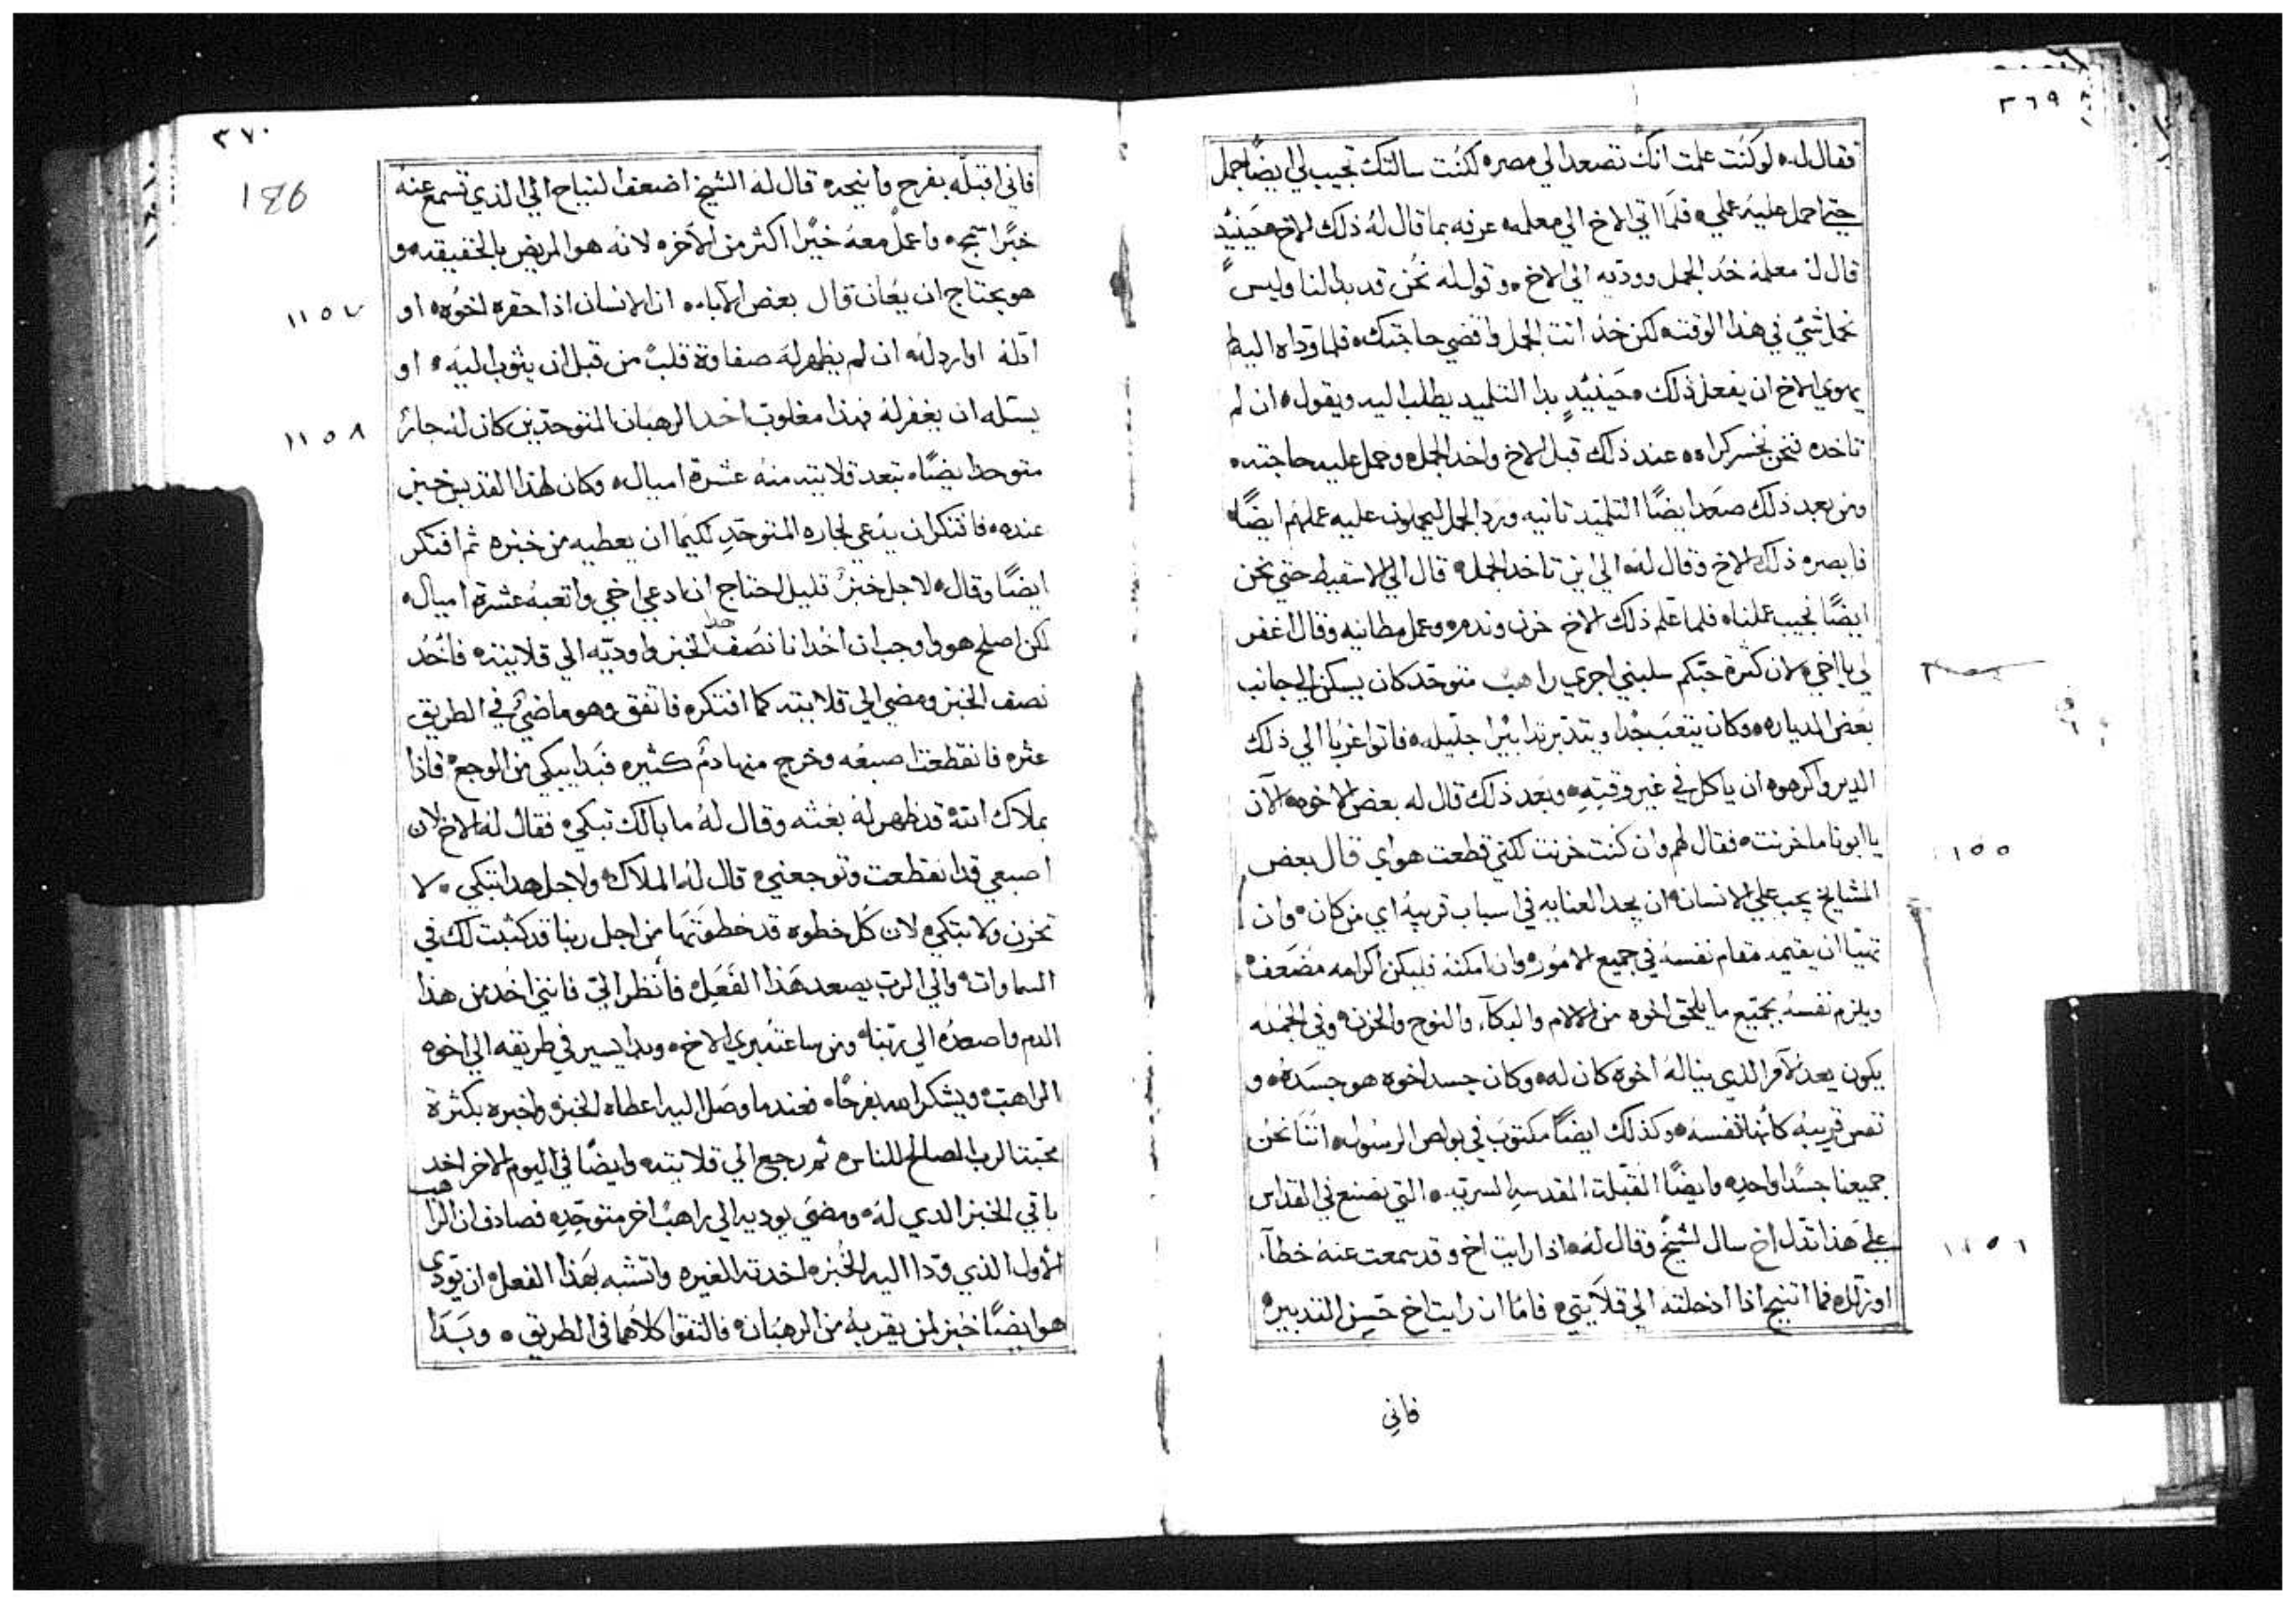 ٣٦٩
فقال له لو كنت علمت انك تصعد الي مصر لكنت سالتك تجيب لي ايضًا جمل
حتي احمل عليه عملي فلما اتي الاخ الي معلمه عرفه بما قال له ذلك الاخ حينيد
قال له معلمه خد الجمل ووديه الي الاخ وقول له نحن قد بدا لنا وليس
نحمل شي في هذا الوقت لكن خد انت الجمل واقضي حاجتك فلما وداه اليه لم
يهوي الاخ ان يفعل ذلك حينيدٍ بدا التلميد يطلب اليه ويقول ان لم
تاخده نحن نخسر كراه عند ذلك قبل الاخ واخد الجمل وحمل عليه حاجته
ومن بعد ذلك صعد ايضًا التلميد تانيه ورد الجمل ليحملون عليه عملهم ايضًا
فابصره ذلك الاخ وقال له الي اين تاخد الجمل قال الي الاسقيط حتي نحن
ايضًا نجيب عملنا فلما علم ذلك الاخ حزن وندم وعمل مطانيه وقال اغفر
لي يا اخي لان كثرة حبكم سلبني اجري راهب متوحد كان يسكن الي جانب
بعض الدياره وكان يتعب جدا ويتدبر تدابيرا جليله فاتوا غربا الي ذلك
الدير واكرهوه ان ياكل في غير وقته وبعد ذلك قال له بعض الاخوه الان
يا ابونا ما حزنت فقال لهم وان كنت حزنت لكني قطعت هواي قال بعض
١١٥٥
المشايخ يجب علي الانسان ان يجد العنايه في اسباب قريبه اي من كان وان
تهيا ان يقيمه مقام نفسه في جميع الامور وان امكنه فليكن اكرامه مضعف
ويلزم نفسه بجميع ما يلحق اخوه من الالام والبكاء والنوح والحزن وفي الجمله
يكون يعد الامر الذي يناله اخوه كان له وكان جسد اخوه هو جسده و
نفس قريبه كانها نفسه وكذلك ايضًا مكتوب في بولص الرسول اننا نحن
جميعنا جسدًا واحده وايضًا القبلة المقدسه السريه التي نصنع في القداس
علي هذا تدل اخ سال لشيخ وقال له اذا رايت اخ وقد سمعت عنه خطاء
١١٥٦
او زله فما اتنيح اذا ادخلته الي قلايتي فاما ان رايت اخ حسن التدبير
فاني
٣٧٠
186
فاني اقبله بفرح وانيحه قال له الشيخ اضعف النياح الي الذي تسمع عنه
خبرًا سمج واعمل معه خيرًا اكثر من الاخر لانه هو المريض بالحقيقه و
هو يحتاج ان يعان قال بعض الاباء ان الانسان اذا حقره اخوه او
١١٥٧
اذله او ارد له ان لم يظهر له صفاوة قلب من قبل ان يتوب اليه او
يسئله ان يغفر له فهذا مغلوب احد الرهبان المتوحدين كان له جار
١١٥٨
متوحد ايضًا تبعد قلايته منه عشرة اميال وكان لهذا القديس خبز
عنده فافتكر ان يدعي لجاره المتوحد لكيما ان يعطيه من خبزه ثم افتكر
ايضًا وقال لاجل خبز قليل احتاج انا ادعي اخي واتعبه عشرة اميال
لكن اصلح هو واوجب ان اخد انا نصف هذا الخبز واوديه الي قلايته فاخد
نصف الخبز ومضي الي قلايته كما افتكر فاتفق وهو ماضي في الطريق
عثر فانقطعت اصبعه وخرج منها دم كثير فبدا يبكي من الوجع فاذا
بملاك الله قد ظهر له بغثه وقال له ما بالك تبكي فقال له الاخ لان
اصبعي قد انقطعت وتوجعني قال له الملاك ولاجل هدا تبكي لا
تحزن ولا تبكي لان كل خطوه قد خطوتها من اجل ربنا قد كتبت لك في
السماوات والي الرب يصعد هذا الفعل فانظر الي فانني اخد من هذا
الدم واصعده الي ربنا ومن ساعته بري الاخ وبدا يسير في طريقه الي اخوه
الراهب ويشكر الله بفرحًا فعندما وصل اليه اعطاه الخبز واخبره بكثرة
محبتنا الرب الصالح للناس ثم رجع الي قلايته وايضًا في اليوم الاخر اخد
باقي الخبز الدي له ومضي يوديه الي راهب اخر متوحد فصادف ان الراهب
الاول الذي ودا اليه الخبز اخدته الغيره واتشبه بهذا الفعل ان يودي
هو ايضًا خبز لمن يقربه من الرهبان فالتقوا كلاهما في الطريق وبدا